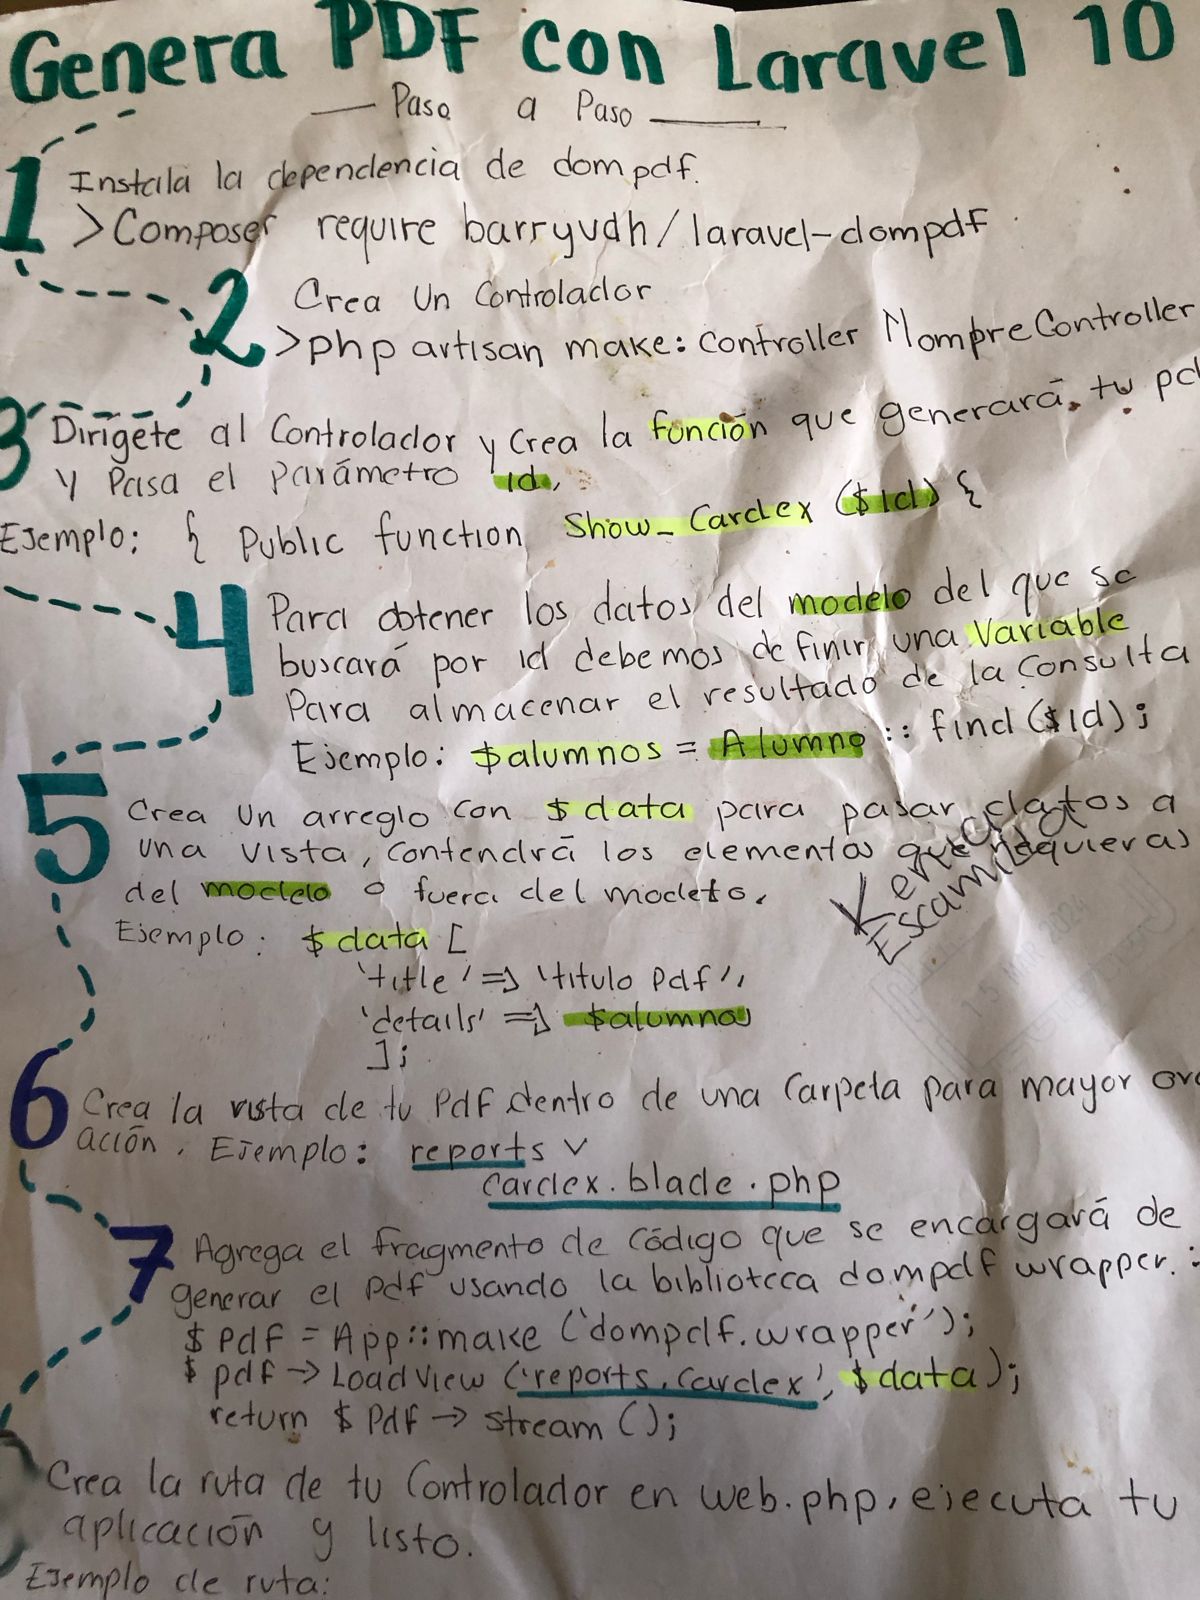 Genera PDF con Laravel 10
Paso a Paso
1 Instala la dependencia de dompdf.
>Composer require barryvdh/laravel-dompdf
2 Crea Un Controlador
>php artisan make: controller NombreController
3 Dirígete al Controlador y Crea la función que generará tu pd
y Pasa el parámetro id,
Ejemplo: { Public function Show_Cardex ($id) {
4 Para obtener los datos del modelo del que se
buscará por id debemos definir una Variable
Para almacenar el resultado de la Consulta
Ejemplo: $alumnos = Alumno :: find ($id);
5 Crea Un arreglo con $data para pasar datos a
una vista, Contendrá los elementos que requieras
del modelo o fuera del modelo.
Kenia
Escamilla
Ejemplo: $data [
'title' => 'titulo Pdf',
'details' => $alumnos
];
15 MAR 2024
6 Crea la vista de tu Pdf dentro de una Carpeta para mayor
ación. Ejemplo: reports v
cardex.blade.php
7 Agrega el fragmento de Código que se encargará de
generar el Pdf usando la biblioteca dompdf wrapper. :
$ pdf = App::make ('dompdf.wrapper');
$ pdf -> LoadView ('reports.Cardex', $data);
return $ Pdf -> stream ();
Crea la ruta de tu Controlador en web.php, ejecuta tu
aplicación y listo.
Ejemplo de ruta: